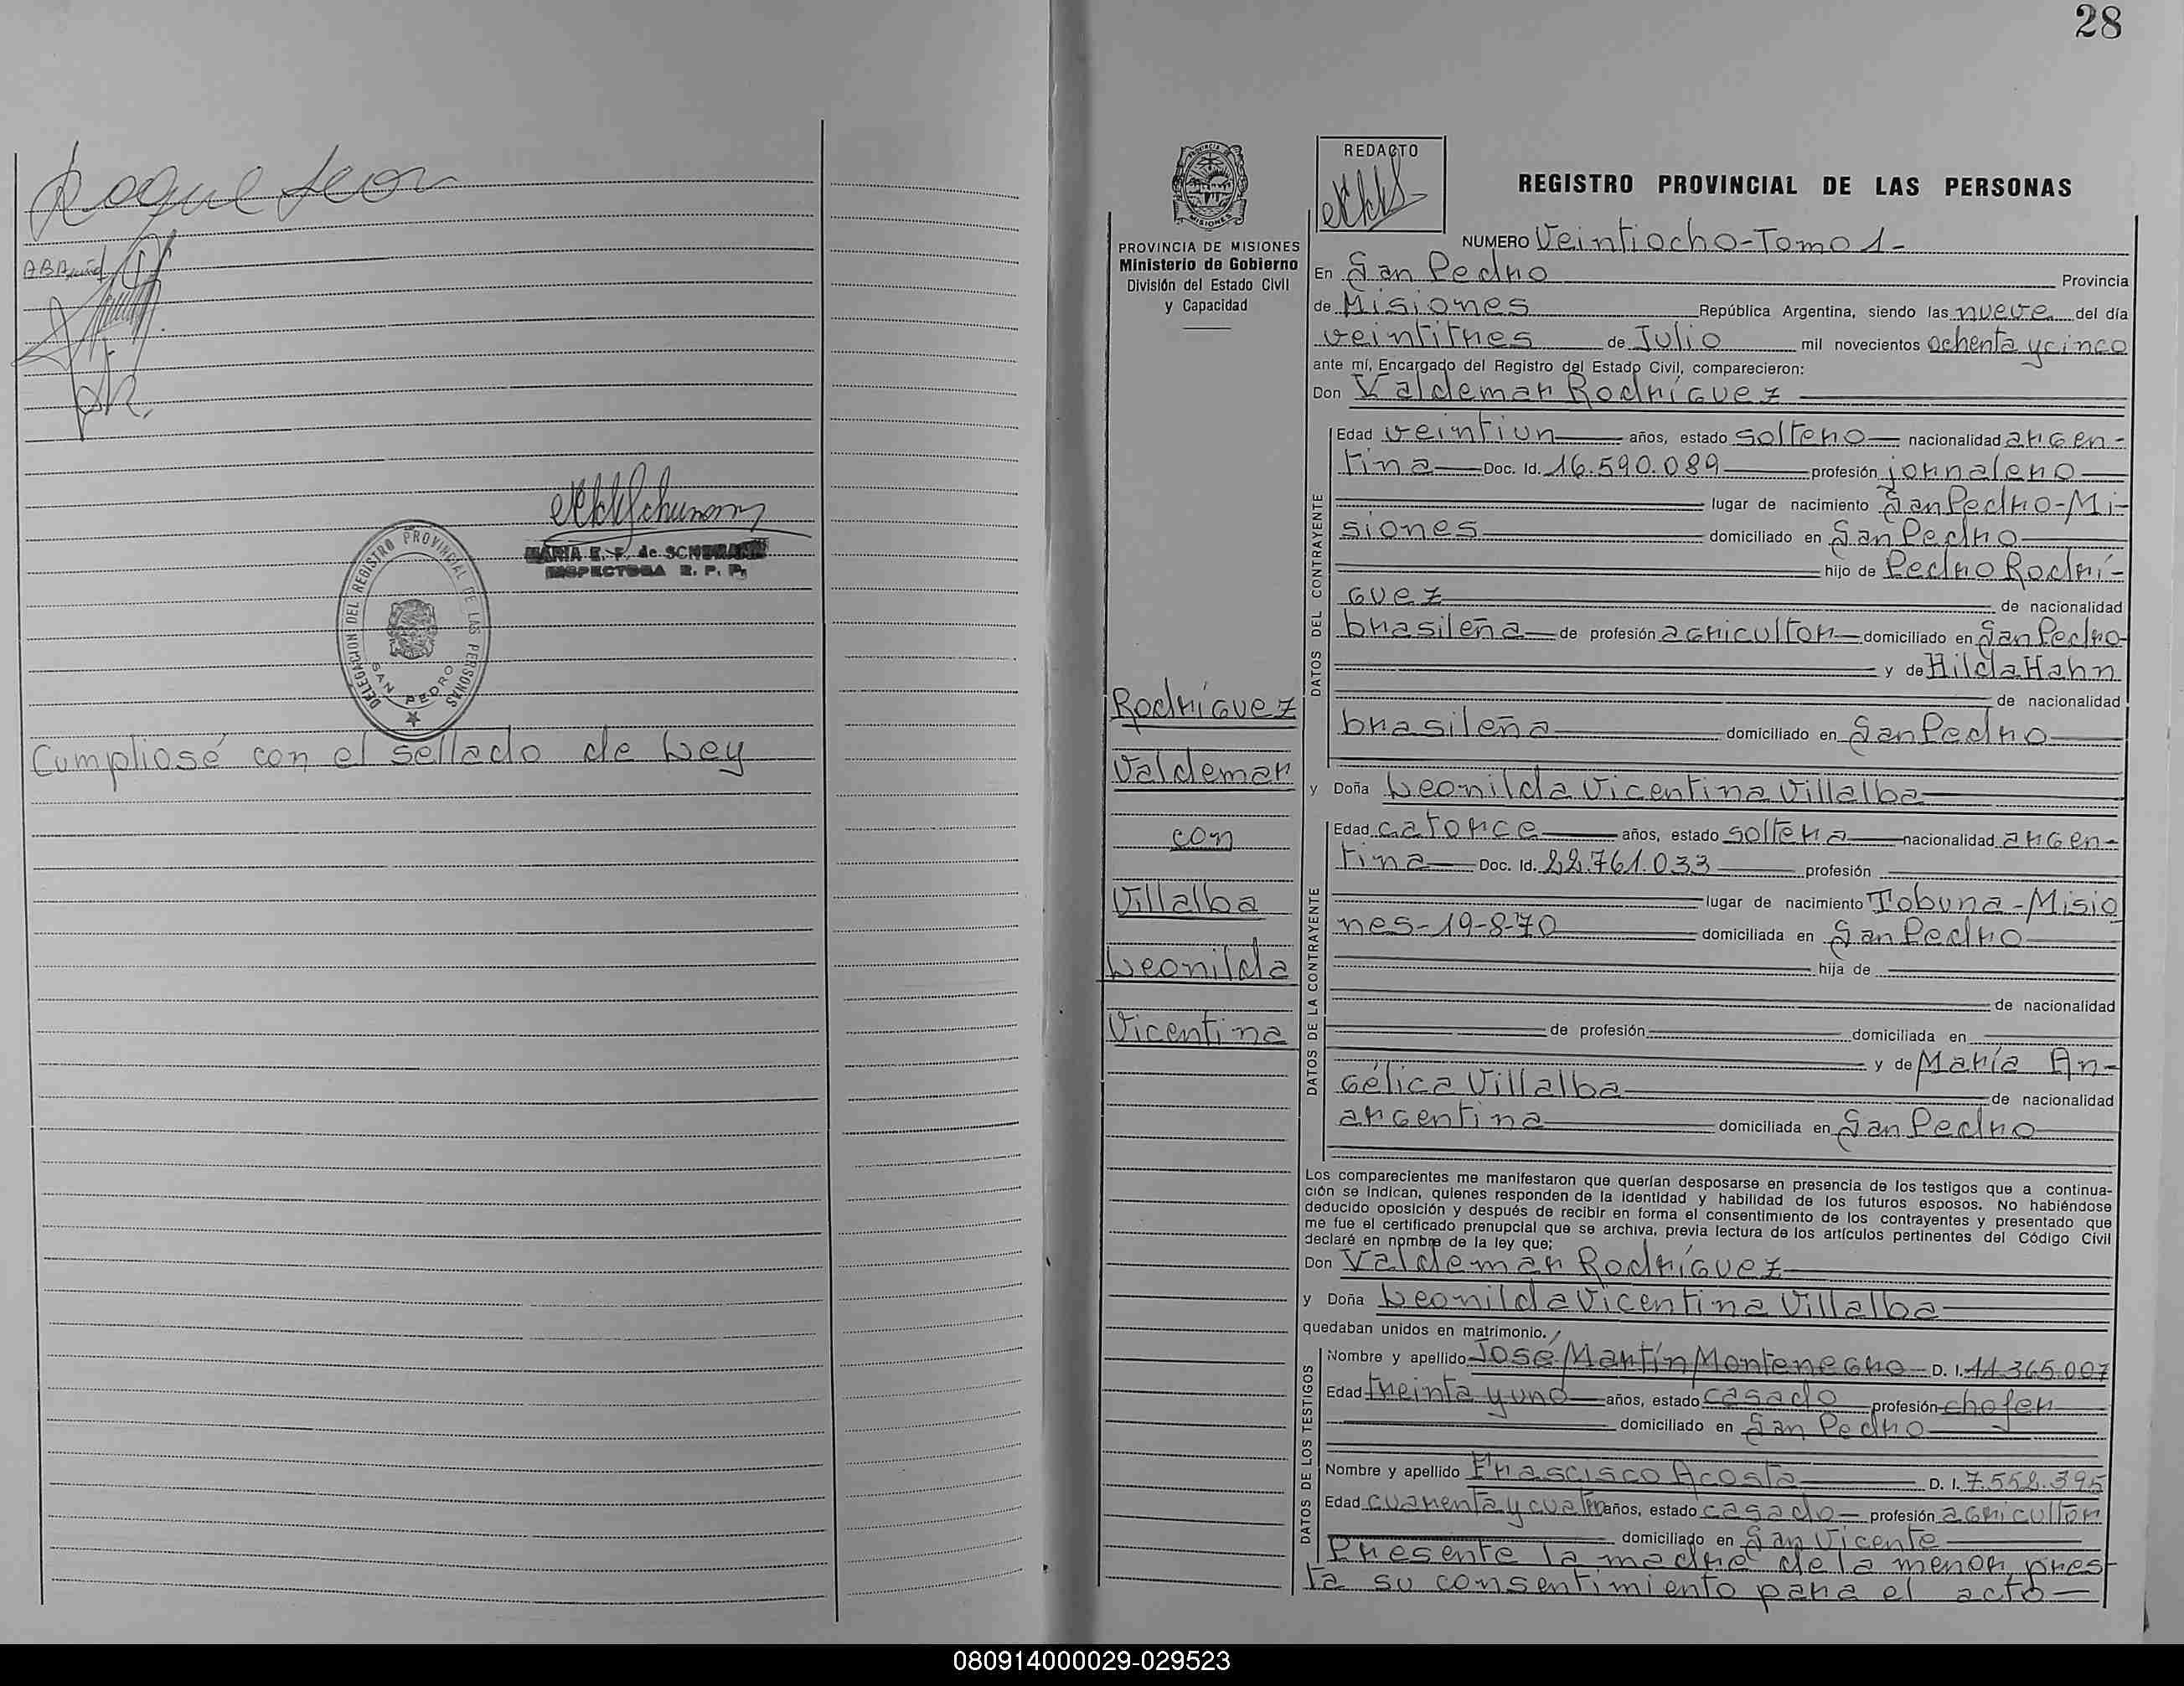 28
Roque
REGISTRO PROVINCIAL
DELEGACION DEL REGISTRO PROVINCIAL DE LAS PERSONAS
SAN PEDRO
MARIA E. F. de SCHUMANN
INSPECTORA R. P. P.
Cumpliosé con el sellado de Ley
PROVINCIA
MISIONES
PROVINCIA DE MISIONES
Ministerio de Gobierno
División del Estado Civil
y Capacidad
Rodríguez
Valdemar
con
Villalba
Leonilda
Vicentina
REDACTO
REGISTRO PROVINCIAL DE LAS PERSONAS
NUMERO Veintiocho-Tomo 1-
En San Pedro Provincia
de Misiones República Argentina, siendo las nueve del día
veintitres de Julio mil novecientos ochenta y cinco
ante mí, Encargado del Registro del Estado Civil, comparecieron:
Don Valdemar Rodríguez
DATOS DEL CONTRAYENTE
Edad veintiun años, estado soltero nacionalidad argen-
tina Doc. Id. 16.590.089 profesión jornalero
lugar de nacimiento San Pedro-Mi-
siones domiciliado en San Pedro
hijo de Pedro Rodrí-
guez de nacionalidad
brasileña de profesión agricultor domiciliado en San Pedro
y de Hilda Hahn
de nacionalidad
brasileña domiciliado en San Pedro
y Doña Leonilda Vicentina Villalba
DATOS DE LA CONTRAYENTE
Edad catorce años, estado soltera nacionalidad argen-
tina Doc. Id. 22.761.033 profesión
lugar de nacimiento Tobuna-Misio
nes-19-8-70 domiciliada en San Pedro
hija de
de nacionalidad
de profesión domiciliada en
y de María An-
gélica Villalba de nacionalidad
argentina domiciliada en San Pedro
Los comparecientes me manifestaron que querían desposarse en presencia de los testigos que a continua-
ción se indican, quienes responden de la identidad y habilidad de los futuros esposos. No habiéndose
deducido oposición y después de recibir en forma el consentimiento de los contrayentes y presentado que
me fue el certificado prenupcial que se archiva, previa lectura de los artículos pertinentes del Código Civil
declaré en nombre de la ley que;
Don Valdemar Rodríguez
y Doña Leonilda Vicentina Villalba
quedaban unidos en matrimonio.
DATOS DE LOS TESTIGOS
Nombre y apellido José Martín Montenegro D. I. 11.365.007
Edad treinta y uno años, estado casado profesión chofer
domiciliado en San Pedro
Nombre y apellido Frascisco Acosta D. I. 7.552.395
Edad cuarenta y cuatro años, estado casado profesión agricultor
domiciliado en San Vicente
Presente la madre de la menor, pres-
ta su consentimiento para el acto
080914000029-029523